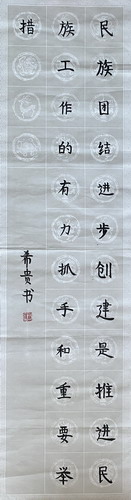 民族团结进步创建是推进民
族工作的有力抓手和重要举
措
希贵书